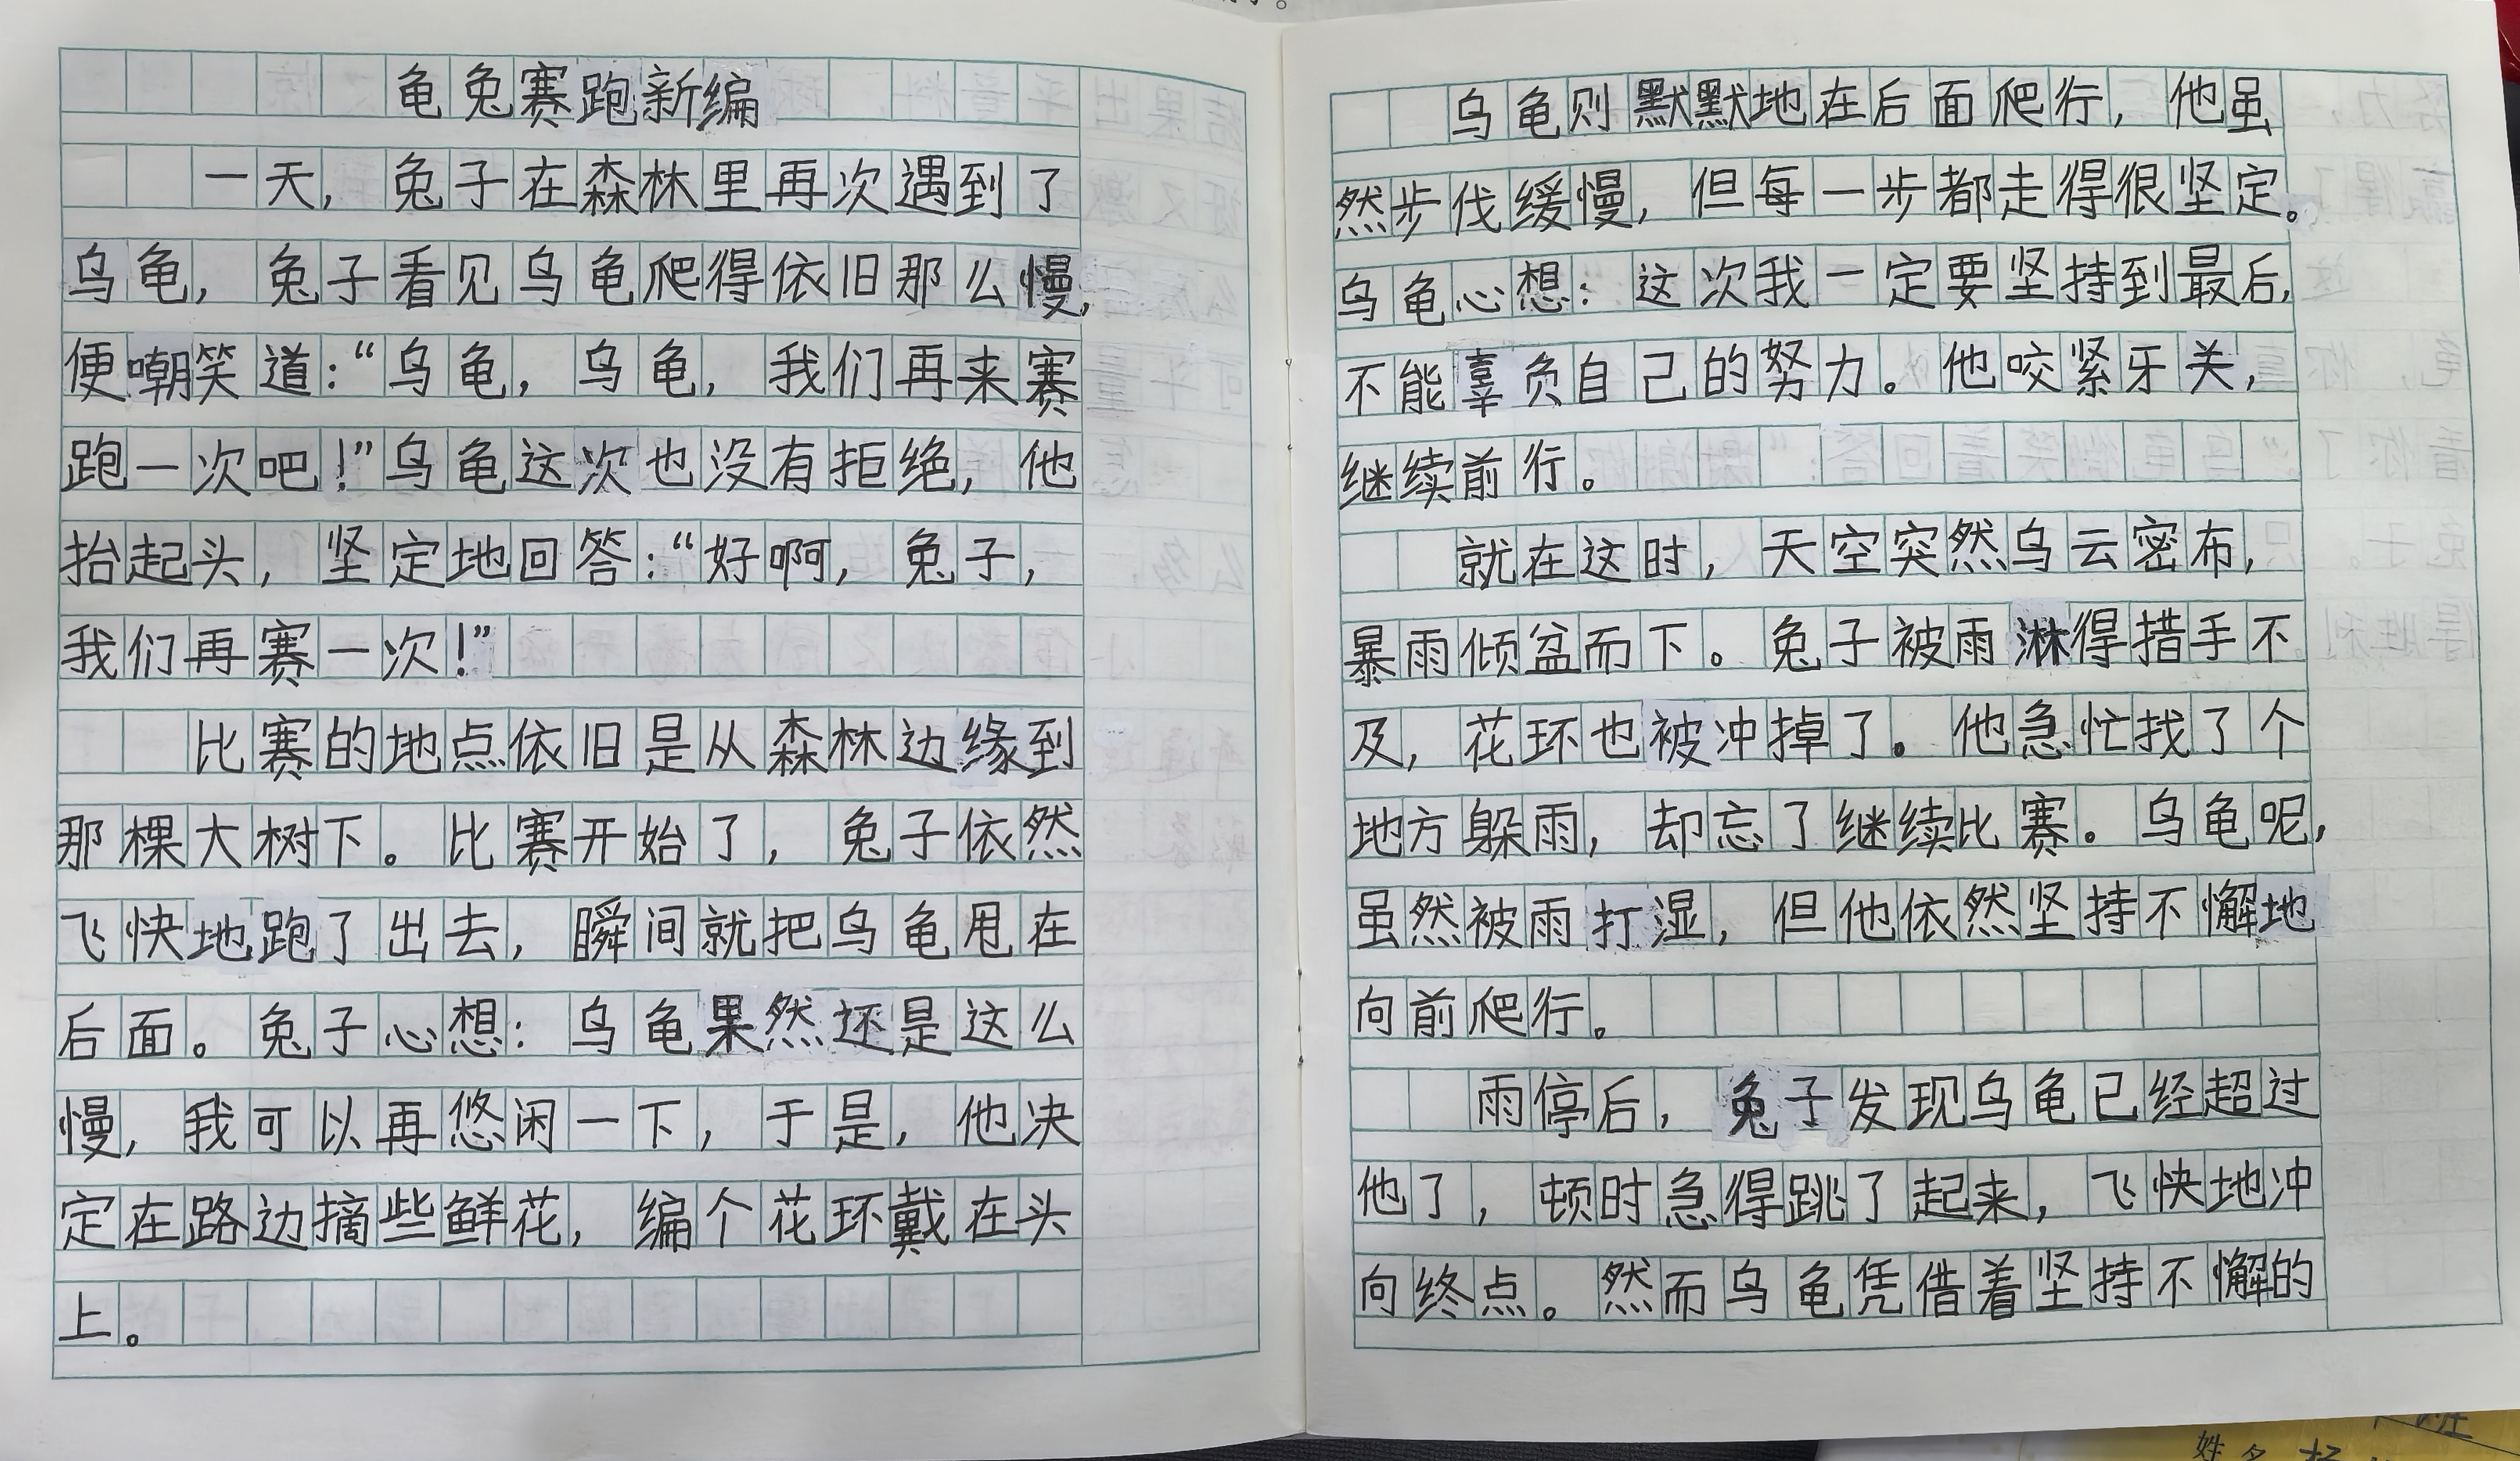 龟兔赛跑新编
一天，兔子在森林里再次遇到了
乌龟，兔子看见乌龟爬得依旧那么慢，
便嘲笑道：“乌龟，乌龟，我们再来赛
跑一次吧！”乌龟这次也没有拒绝，他
抬起头，坚定地回答：“好啊，兔子，
我们再赛一次！”
比赛的地点依旧是从森林边缘到
那棵大树下。比赛开始了，兔子依然
飞快地跑了出去，瞬间就把乌龟甩在
后面。兔子心想：乌龟果然还是这么
慢，我可以再悠闲一下，于是，他决
定在路边摘些鲜花，编个花环戴在头
上。
乌龟则默默地在后面爬行，他虽
然步伐缓慢，但每一步都走得很坚定。
乌龟心想：这次我一定要坚持到最后，
不能辜负自己的努力。他咬紧牙关，
继续前行。
就在这时，天空突然乌云密布，
暴雨倾盆而下。兔子被雨淋得措手不
及，花环也被冲掉了。他急忙找了个
地方躲雨，却忘了继续比赛。乌龟呢，
虽然被雨打湿，但他依然坚持不懈地
向前爬行。
雨停后，兔子发现乌龟已经超过
他了，顿时急得跳了起来，飞快地冲
向终点。然而乌龟凭借着坚持不懈的
班
姓名